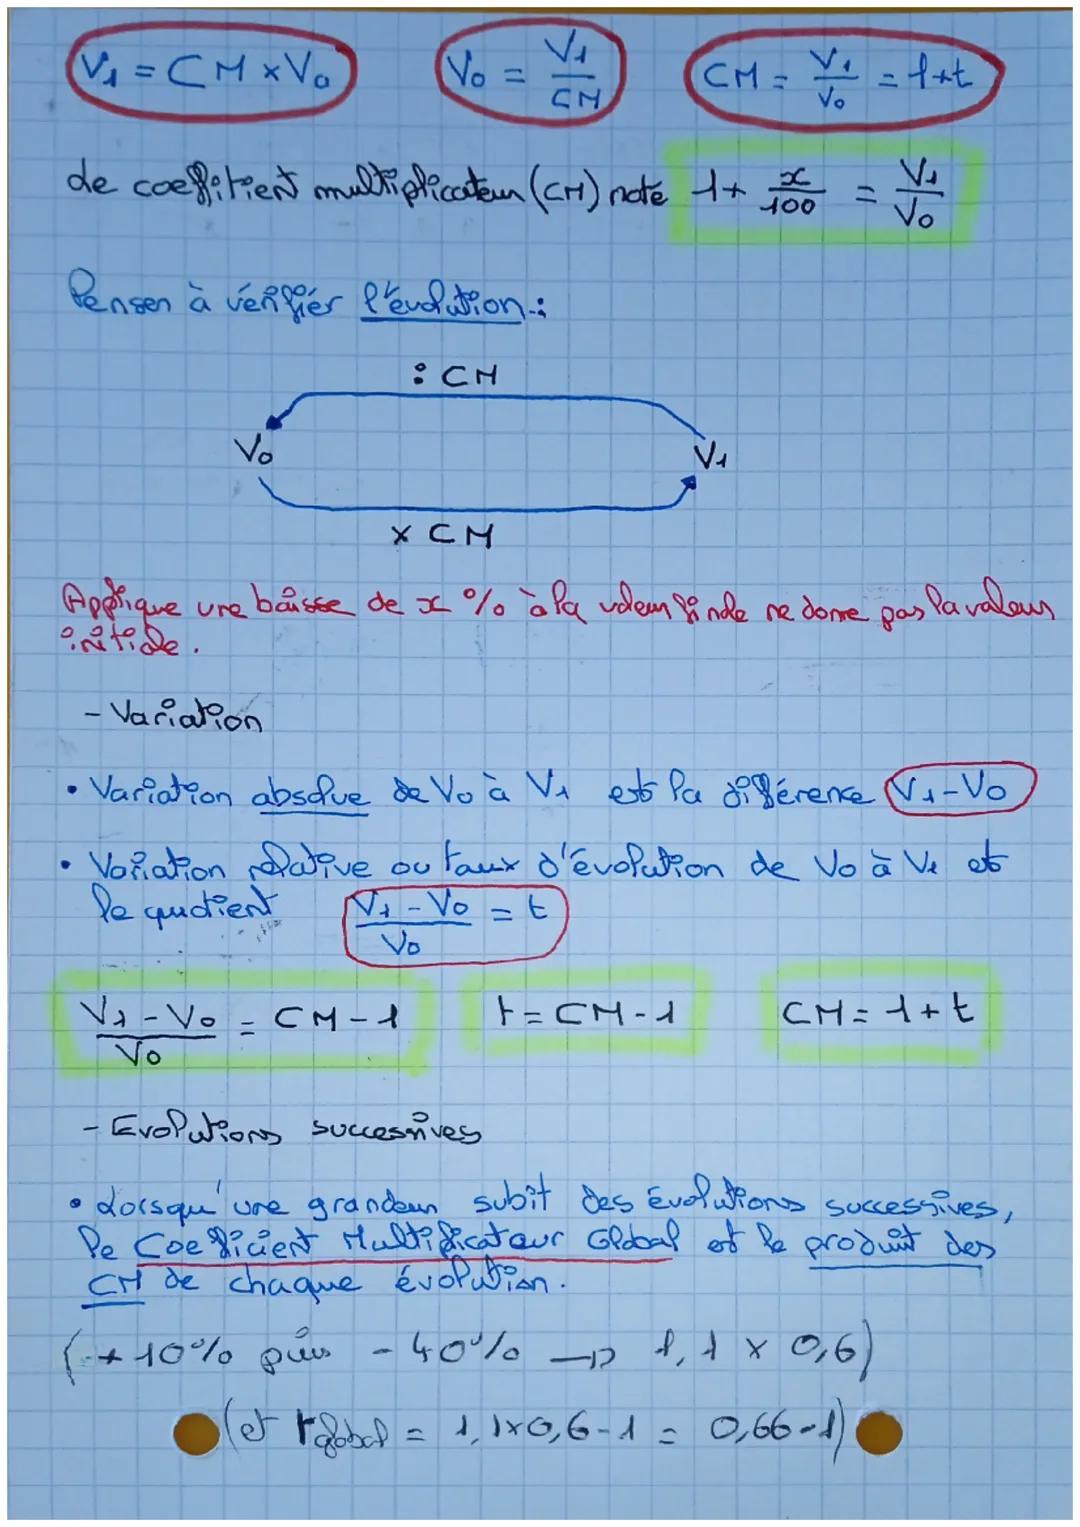 V1 = CM x V0 V0 = V1/CM CM = V1/V0 = 1+t
de coeffitient multiplicateur (CM) note 1 + x/100 = V1/V0
Penser à vérifier l'évolution :
: CM
V0 V1
x CM
Applique une baisse de x % à la valeur finale ne donne pas la valeur
initiale.
- Variation
• Variation absolue de V0 à V1 est la différence V1-V0
• Variation relative ou taux d'évolution de V0 à V1 est
le quotient V1-V0/V0 = t
V1-V0/V0 = CM-1 t = CM-1 CM = 1+t
- Evolutions successives
• Lorsqu'une grandeur subit des évolutions successives,
le Coefficient Multiplicateur Global est le produit des
CM de chaque évolution.
(+10% puis -40% → 1,1 x 0,6)
(et t global = 1,1x0,6-1 = 0,66-1)